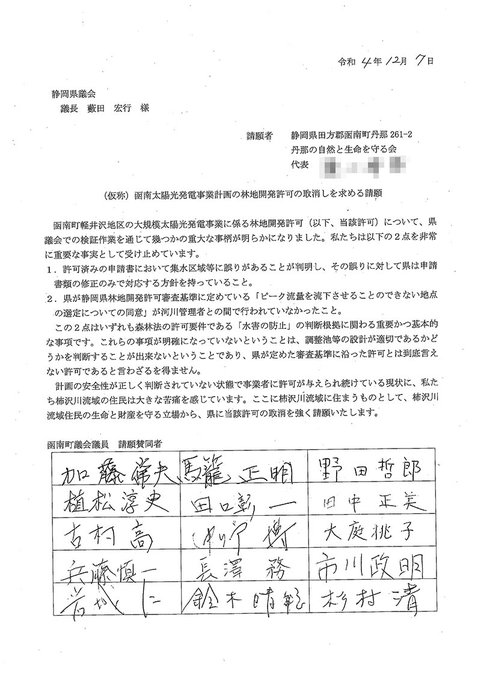 令和 4年12月 7日
静岡県議会
議長 藪田 宏行 様
請願者 静岡県田方郡函南町丹那 261-2
丹那の自然と生命を守る会
代表
(仮称) 函南太陽光発電事業計画の林地開発許可の取消しを求める請願
函南町軽井沢地区の大規模太陽光発電事業に係る林地開発許可(以下、当該許可)について、県
議会での検証作業を通じて幾つかの重大な事柄が明らかになりました。私たちは以下の2点を非常
に重要な事実として受け止めています。
1.許可済みの申請書において集水区域等に誤りがあることが判明し、その誤りに対して県は申請
書類の修正のみで対応する方針を持っていること。
2.県が静岡県林地開発許可審査基準に定めている「ピーク流量を流下させることのできない地点
の選定についての同意」が河川管理者との間で行われていなかったこと。
この2点はいずれも森林法の許可要件である「水害の防止」の判断根拠に関わる重要かつ基本的
な事項です。これらの事項が明確になっていないということは、調整池等の設計が適切であるかど
うかを判断することが出来ないということであり、県が定めた審査基準に沿った許可とは到底言え
ない許可であると言わざるを得ません。
計画の安全性が正しく判断されていない状態で事業者に許可が与えられ続けている現状に、私た
ち柿沢川流域の住民は大きな苦痛を感じています。ここに柿沢川流域に住まうものとして、柿沢川
流域住民の生命と財産を守る立場から、県に当該許可の取消を強く請願いたします。
函南町議会議員 請願賛同者
加藤常夫 馬籠正明 野田哲郎
植松淳史 田口彰一 田中正美
吉村高 大庭桃子
兵藤慎一 長澤務 市川政明
鈴木 杉村清